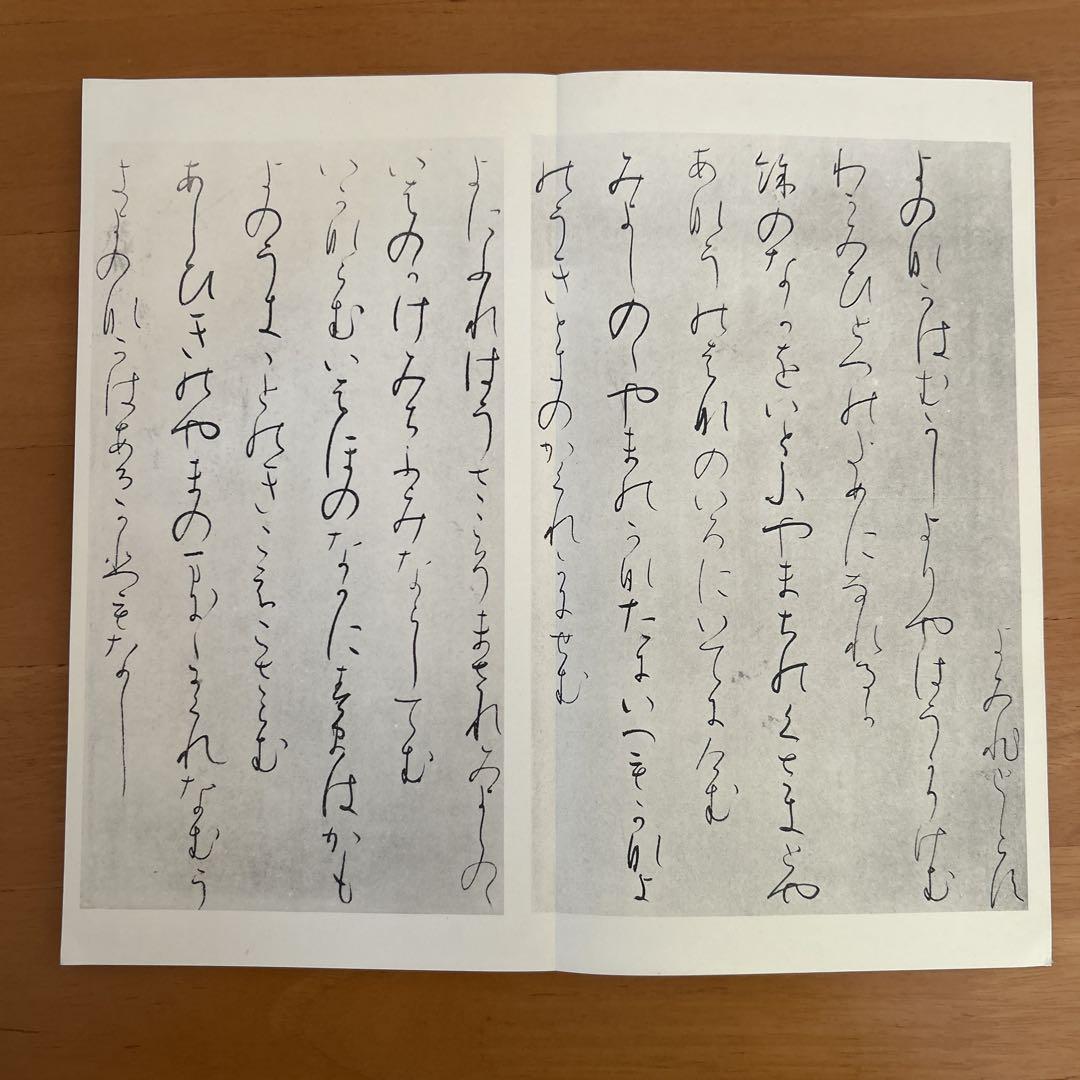 よみひとしらす
よのなかはむかしよりやはうかりけむ
わかみひとつのためになれるか
餘のなかをいとふやまちのくさきとや
あなうのはなのいろにいてにけむ
みよしのゝやまのかなたにいへもかなよ
のうきときのかくれかにせむ
よにふれはうさこそまされみよしのゝ
いはのかけみちふみならしてむ
いかならむいはほのなかにすまはかも
よのうきことのきこえこさらむ
あしひきのやまのまにまにかくれなむう
きよのなかはあるかひもなし